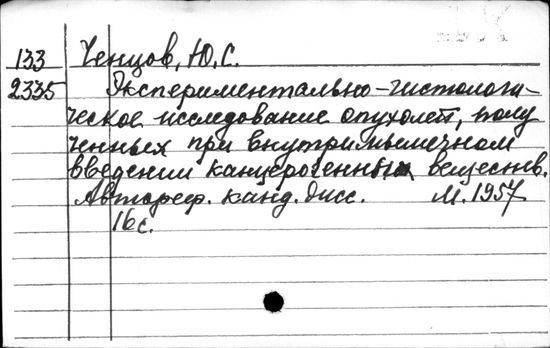 133 Ченцов, Ю.С.
2335 Экспериментально-гистологи-
ческое исследование опухолей, полу
ченных при внутримышечном
введении канцерогенных веществ.
Автореф. канд. дисс. М. 1957
16 с.